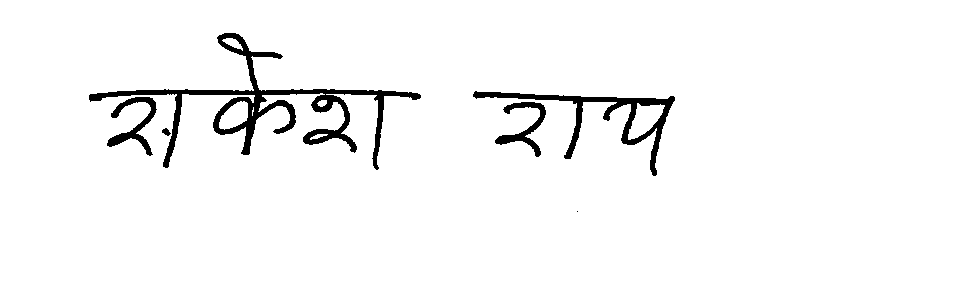 राकेश राय